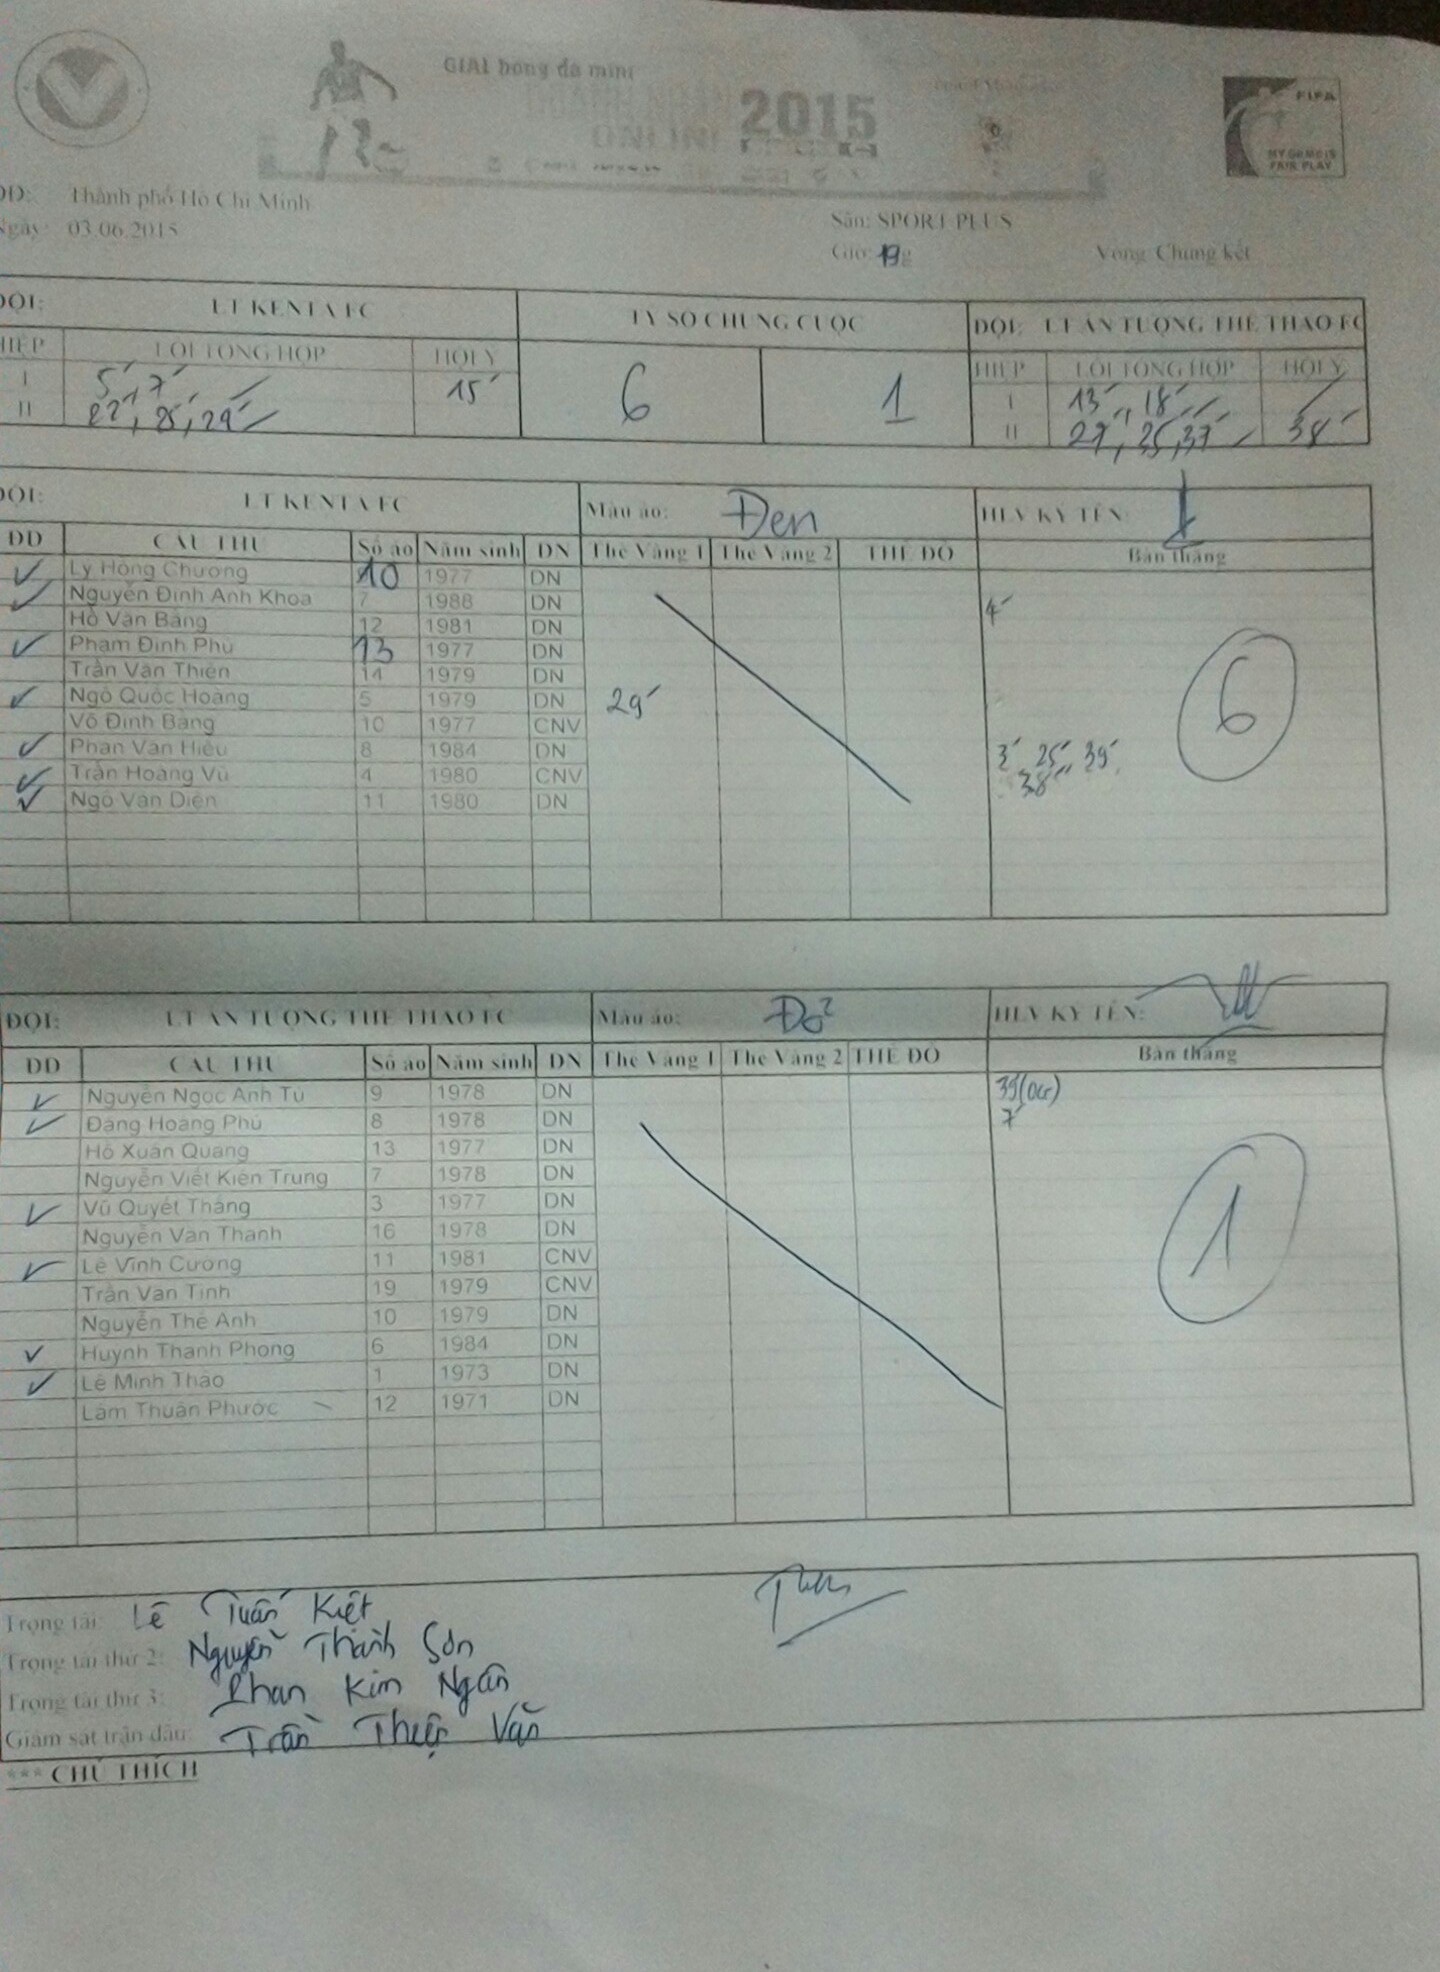 GIẢI bóng đá mini
DOANH NHÂN
ONLINE 2015
FIFA
MY GAME IS
FAIR PLAY
DD: Thành phố Hồ Chí Minh
Ngày: 03.06.2015
Sân: SPORT PLUS
Giờ: 19g Vòng: Chung kết
ĐỘI: LT KENTA FC TỶ SỐ CHUNG CUỘC ĐỘI: LT ẤN TƯỢNG THỂ THAO FC
HIỆP LỖI TỔNG HỢP HỘI Ý 6 1 HIỆP LỖI TỔNG HỢP HỘI Ý
I 5', 7' 15' I 13', 18'
II 22', 25', 29' II 27', 35', 37' 38'
ĐỘI: LT KENTA FC Màu áo: Đen HLV KÝ TÊN:
DD CẦU THỦ Số áo Năm sinh DN Thẻ Vàng 1 Thẻ Vàng 2 THẺ ĐỎ Bàn thắng
Lý Hồng Chương 10 1977 DN
Nguyễn Đình Anh Khoa 7 1988 DN 4'
Hồ Văn Bảng 12 1981 DN
Phạm Đình Phú 13 1977 DN
Trần Văn Thiện 14 1979 DN
Ngô Quốc Hoàng 5 1979 DN 29' 6
Võ Đình Bảng 10 1977 CNV
Phan Văn Hiếu 8 1984 DN 3', 25', 39',
Trần Hoàng Vũ 4 1980 CNV 38''
Ngô Văn Diện 11 1980 DN
ĐỘI: LT ẤN TƯỢNG THỂ THAO FC Màu áo: Đỏ HLV KÝ TÊN:
DD CẦU THỦ Số áo Năm sinh DN Thẻ Vàng 1 Thẻ Vàng 2 THẺ ĐỎ Bàn thắng
Nguyễn Ngọc Anh Tú 9 1978 DN
Đặng Hoàng Phú 8 1978 DN 7'
Hồ Xuân Quang 13 1977 DN
Nguyễn Viết Kiên Trung 7 1978 DN
Vũ Quyết Thắng 3 1977 DN
Nguyễn Văn Thanh 16 1978 DN 1
Lê Vĩnh Cường 11 1981 CNV
Trần Văn Tính 19 1979 CNV
Nguyễn Thế Anh 10 1979 DN
Huỳnh Thanh Phong 6 1984 DN
Lê Minh Thảo 1 1973 DN
Lâm Thuận Phước 12 1971 DN
Trọng tài: Lê Tuấn Kiệt
Trọng tài thứ 2: Nguyễn Thành Sơn
Trọng tài thứ 3: Phan Kim Ngân
Giám sát trận đấu: Trần Thiện Văn
*** CHÚ THÍCH